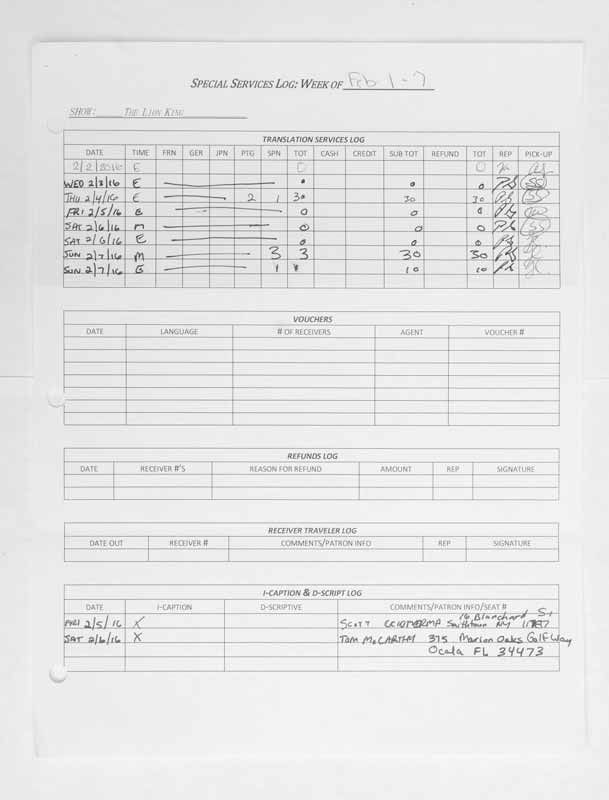 SPECIAL SERVICES LOG: WEEK OF Feb 1-7
SHOW: THE LION KING
TRANSLATION SERVICES LOG
DATE TIME FRN GER JPN PTG SPN TOT CASH CREDIT SUB TOT REFUND TOT REP PICK-UP
2/2/2016 E 0 0
WED 2/3/16 E 0 0 0 PS SS
THU 2/4/16 E 2 1 30 30 30 PS SS
FRI 2/5/16 E 0 0 0 PS
SAT 2/6/16 M 0 0 0 PS SS
SAT 2/6/16 E 0 0 0 PS
SUN 2/7/16 M 3 3 30 30 PS
SUN 2/7/16 E 1 1 10 10 PS
VOUCHERS
DATE LANGUAGE # OF RECEIVERS AGENT VOUCHER #
REFUNDS LOG
DATE RECEIVER #'S REASON FOR REFUND AMOUNT REP SIGNATURE
RECEIVER TRAVELER LOG
DATE OUT RECEIVER # COMMENTS/PATRON INFO REP SIGNATURE
I-CAPTION & D-SCRIPT LOG
DATE I-CAPTION D-SCRIPTIVE COMMENTS/PATRON INFO/SEAT #
16 Blanchard St
FRI 2/5/16 X SCOTT Smithtown NY
SAT 2/6/16 X TOM McCARTHY 375 Marion Oaks Golf Way
Ocala FL 34473